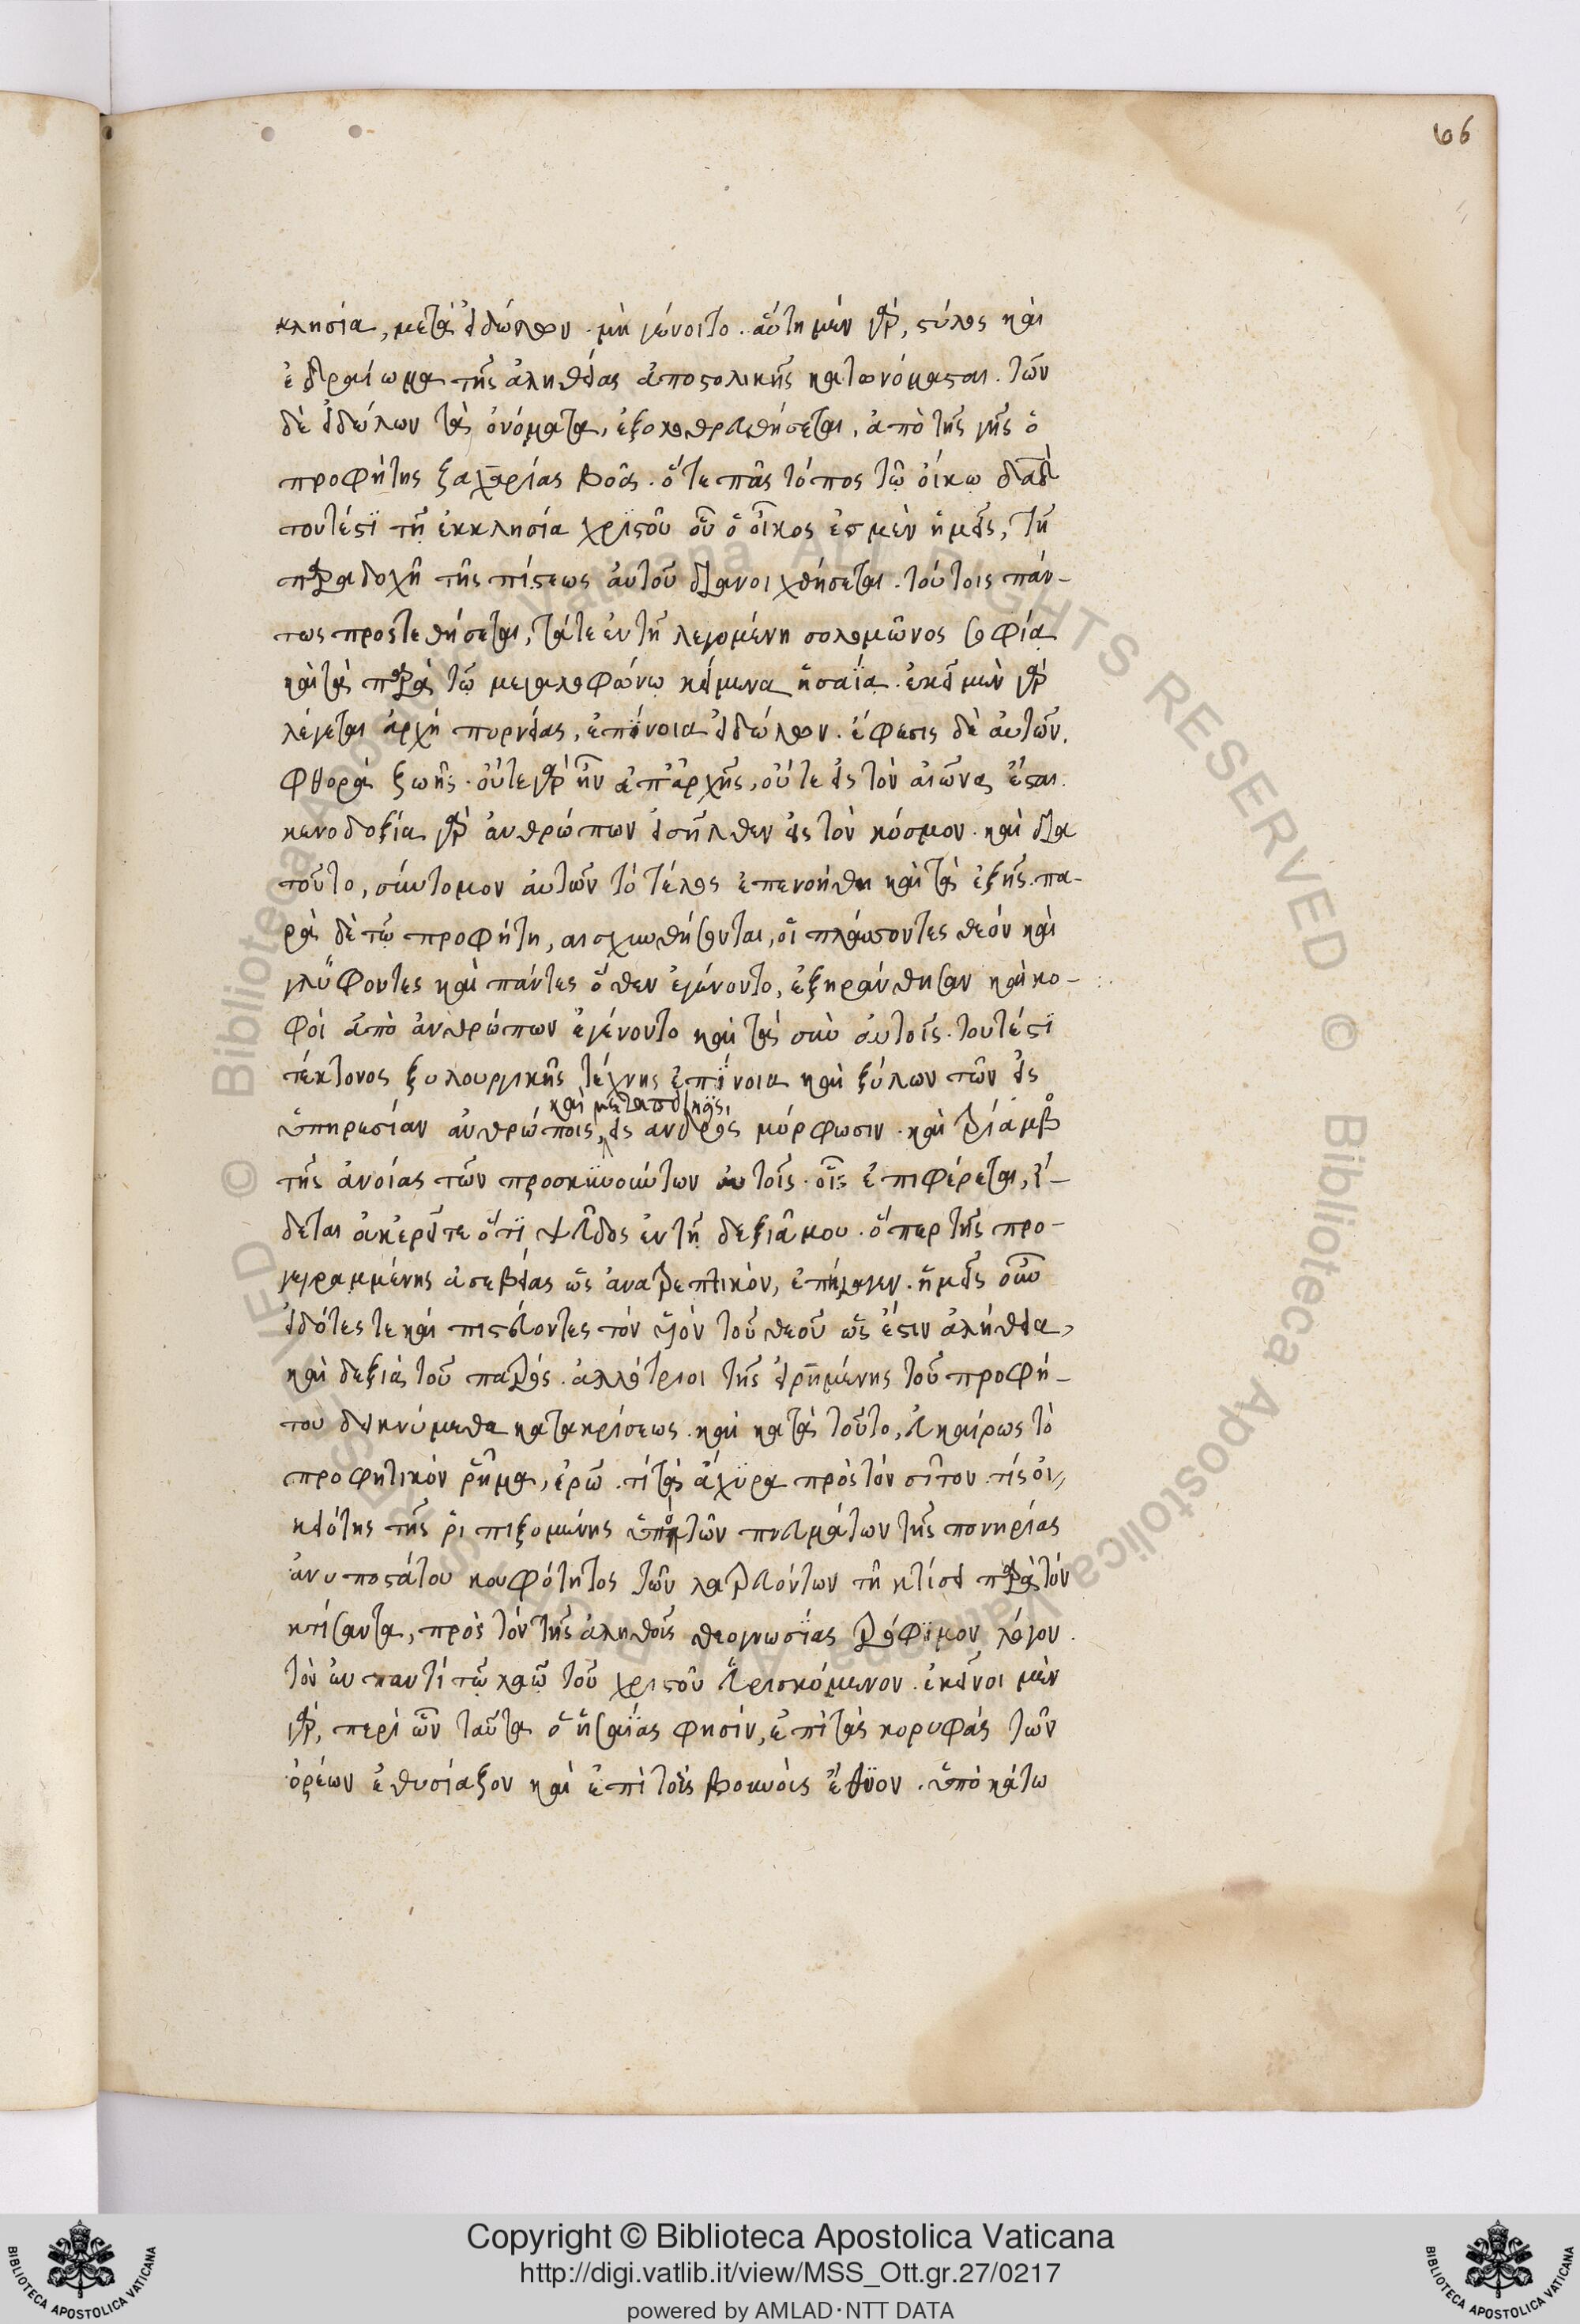 66
κλησία, μετὰ εἰδώλων. μὴ γένοιτο. αὕτη μὲν γὰρ, στύλος καὶ
ἑδραίωμα τῆς ἀληθείας ἀποστολικῆς κατωνόμασται. τῶν
δὲ εἰδώλων τὰ ὀνόματα, ἐξολοθρευθήσεται, ἀπὸ τῆς γῆς ὁ
προφήτης ζαχαρίας βοᾶ. ὅτε πᾶς τόπος τῷ οἴκῳ δαδ
τουτέστι τῇ ἐκκλησία χριστοῦ οὗ ὁ οἶκος ἐσμὲν ἡμεῖς, τῇ
παραδοχῇ τῆς πίστεως αὐτοῦ διανοιχθήσεται. τούτοις πάν-
τως προστεθήσεται, τά τε ἐν τῇ λεγομένη σολομῶνος σοφία
καὶ τὰ παρὰ τῷ μεγαλοφώνω κείμενα ἡσαΐα. ἐκεῖ μὲν γὰρ
λέγεται ἀρχὴ πορνείας, ἐπίνοια εἰδώλων. ἔφεσις δὲ αὐτῶν,
φθορὰ ζωῆς. οὔτε γὰρ ἦν ἀπ' ἀρχῆς, οὔτε εἰς τὸν αἰῶνα ἔσται.
κενοδοξία γὰρ ἀνθρώπων εἰσῆλθεν εἰς τὸν κόσμον. καὶ δια
τοῦτο, σύντομον αὐτῶν τὸ τέλος ἐπενοήθη καὶ τὰ ἑξῆς. πα-
ρὰ δὲ τῷ προφήτη, αισχυνθήσονται, οἱ πλάσσοντες θεὸν καὶ
γλύφοντες καὶ πάντες ὅθεν ἐγένοντο, ἐξηράνθησαν καὶ κο-
φοὶ ἀπὸ ἀνθρώπων ἐγένοντο καὶ τὰ σὺν αὐτοῖς. τουτέστι
τέκτονος ξυλουργικῆς τέχνης ἐπίνοια καὶ ξύλων τῶν εἰς
καὶ μετασκευῆς,
ὑπηρεσίαν ἀνθρώποις, εἰς ανδρὸς μόρφωσιν. καὶ θρίαμβος
τῆς ἀνοίας τῶν προσκυνούντων αὐτοῖς. οἷς ἐπιφέρεται, ἴ-
δεται ἀκερεῖτε ὅτι ψεῦδος ἐν τῇ δεξιᾶ μου. ὅπερ τῆς προ-
γεγραμμένης ἀσεβείας ὡς ἀνατρεπτικὸν, ἐπήγαγεν. ἡμεῖς οὖν
εἰδότες τε καὶ πιστεύοντες τὸν υἱὸν τοῦ θεοῦ ὡς ἔστιν ἀλήθεια,
καὶ δεξιὰ τοῦ πατρός. ἀλλότριοι τῆς εἰρημένης τοῦ προφή-
του δεικνύμεθα κατακρίσεως. καὶ κατὰ τοῦτο, εὐκαίρως τὸ
προφητικὸν ῥῆμα, ἐρῶ. τί τὰ ἄχυρα πρὸς τὸν σῖτον. τίς οἰ-
κειότης τῆς ῥιπιζομένης ὑπὸ τῶν πνευμάτων τῆς πονηρίας
ἀνυποστάτου κουφότητος τῶν λατρευόντων τῇ κτίσει παρὰ τὸν
κτίσαντα, πρὸς τὸν τῆς ἀληθοῦς θεογνωσίας τρόφιμον λόγον.
τὸν ἐν παντὶ τῷ λαῷ τοῦ χριστοῦ εὑρισκόμενον. ἐκεῖνοι μὲν
γὰρ, περὶ ὧν ταῦτα ὁ ἡσαΐας φησὶν, ἐπὶ τὰς κορυφὰς τῶν
ὀρέων ἐθυσίαζον καὶ ἐπὶ τοὺς βουνοὺς ἔθυον. ὑποκάτω
Copyright © Biblioteca Apostolica Vaticana
http://digi.vatlib.it/view/MSS_Ott.gr.27/0217
powered by AMLAD·NTT DATA